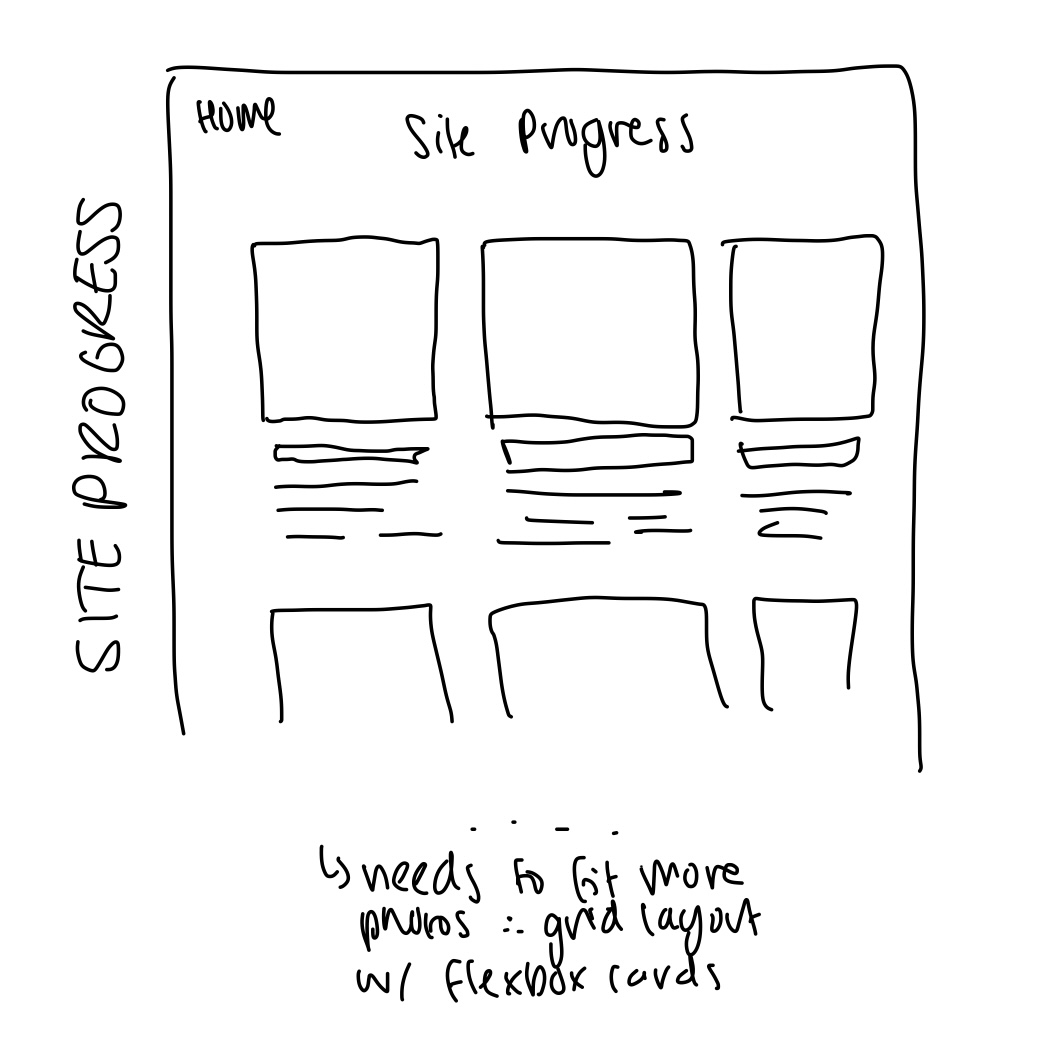 Home
Site Progress
SITE PROGRESS
↳ needs to fit more
photos ∴ grid layout
w/ flexbox cards